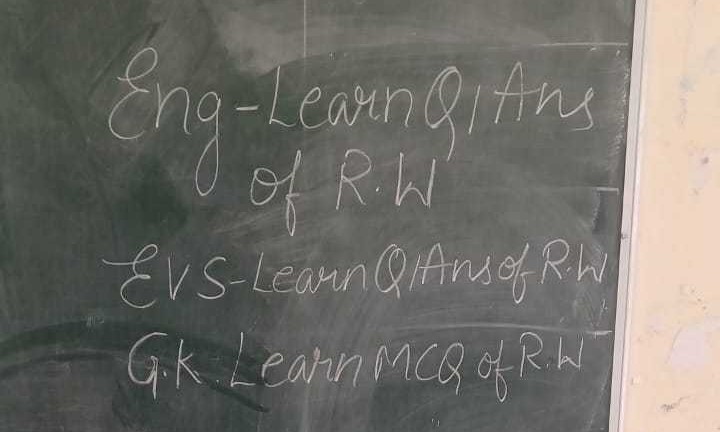 Eng-Learn Q/Ans
of R.W
EVS-Learn Q/Ans of R.W
G.K. Learn MCQ of R.W